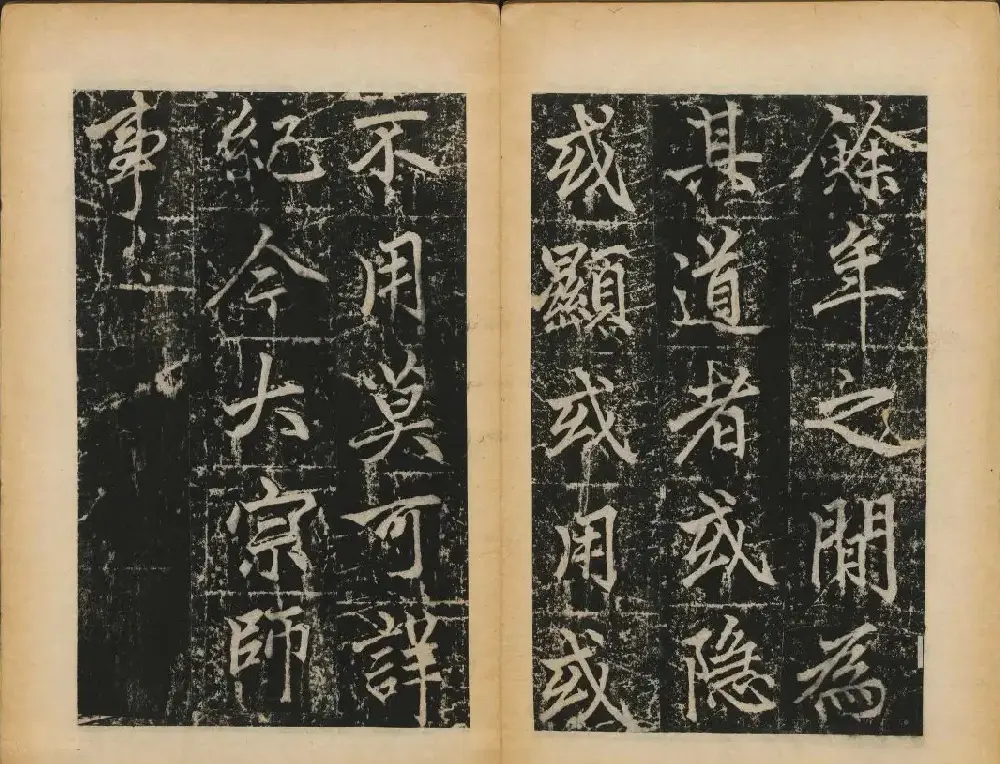 餘年之間為
其道者或隐
或顯或用或
不用莫可詳
紀今大宗師
事